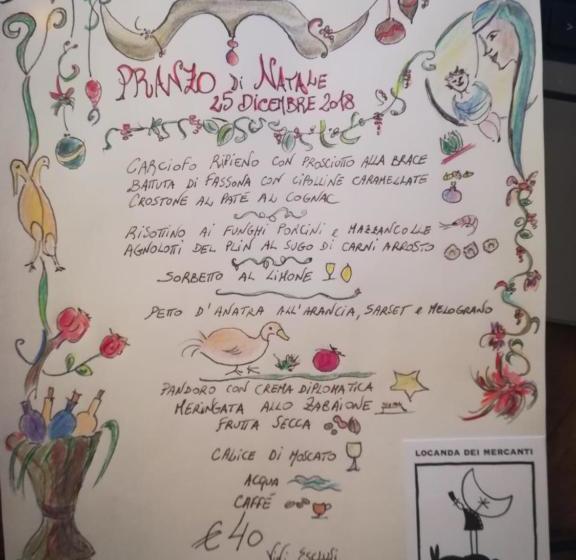 PRANZO DI NATALE
25 DICEMBRE 2018
CARCIOFO RIPIENO CON PROSCIUTTO ALLA BRACE
BATTUTA DI FASSONA CON CIPOLLINE CARAMELLATE
CROSTONE AL PATÉ AL COGNAC
RISOTTINO AI FUNGHI PORCINI E MAZZANCOLLE
AGNOLOTTI DEL PLIN AL SUGO DI CARNI ARROSTO
SORBETTO AL LIMONE
PETTO D'ANATRA ALL'ARANCIA, SARSET E MELOGRANO
PANDORO CON CREMA DIPLOMATICA
MERINGATA ALLO ZABAIONE
FRUTTA SECCA
CALICE DI MOSCATO
ACQUA
CAFFÉ
€ 40
Vini Esclusi
LOCANDA DEI MERCANTI